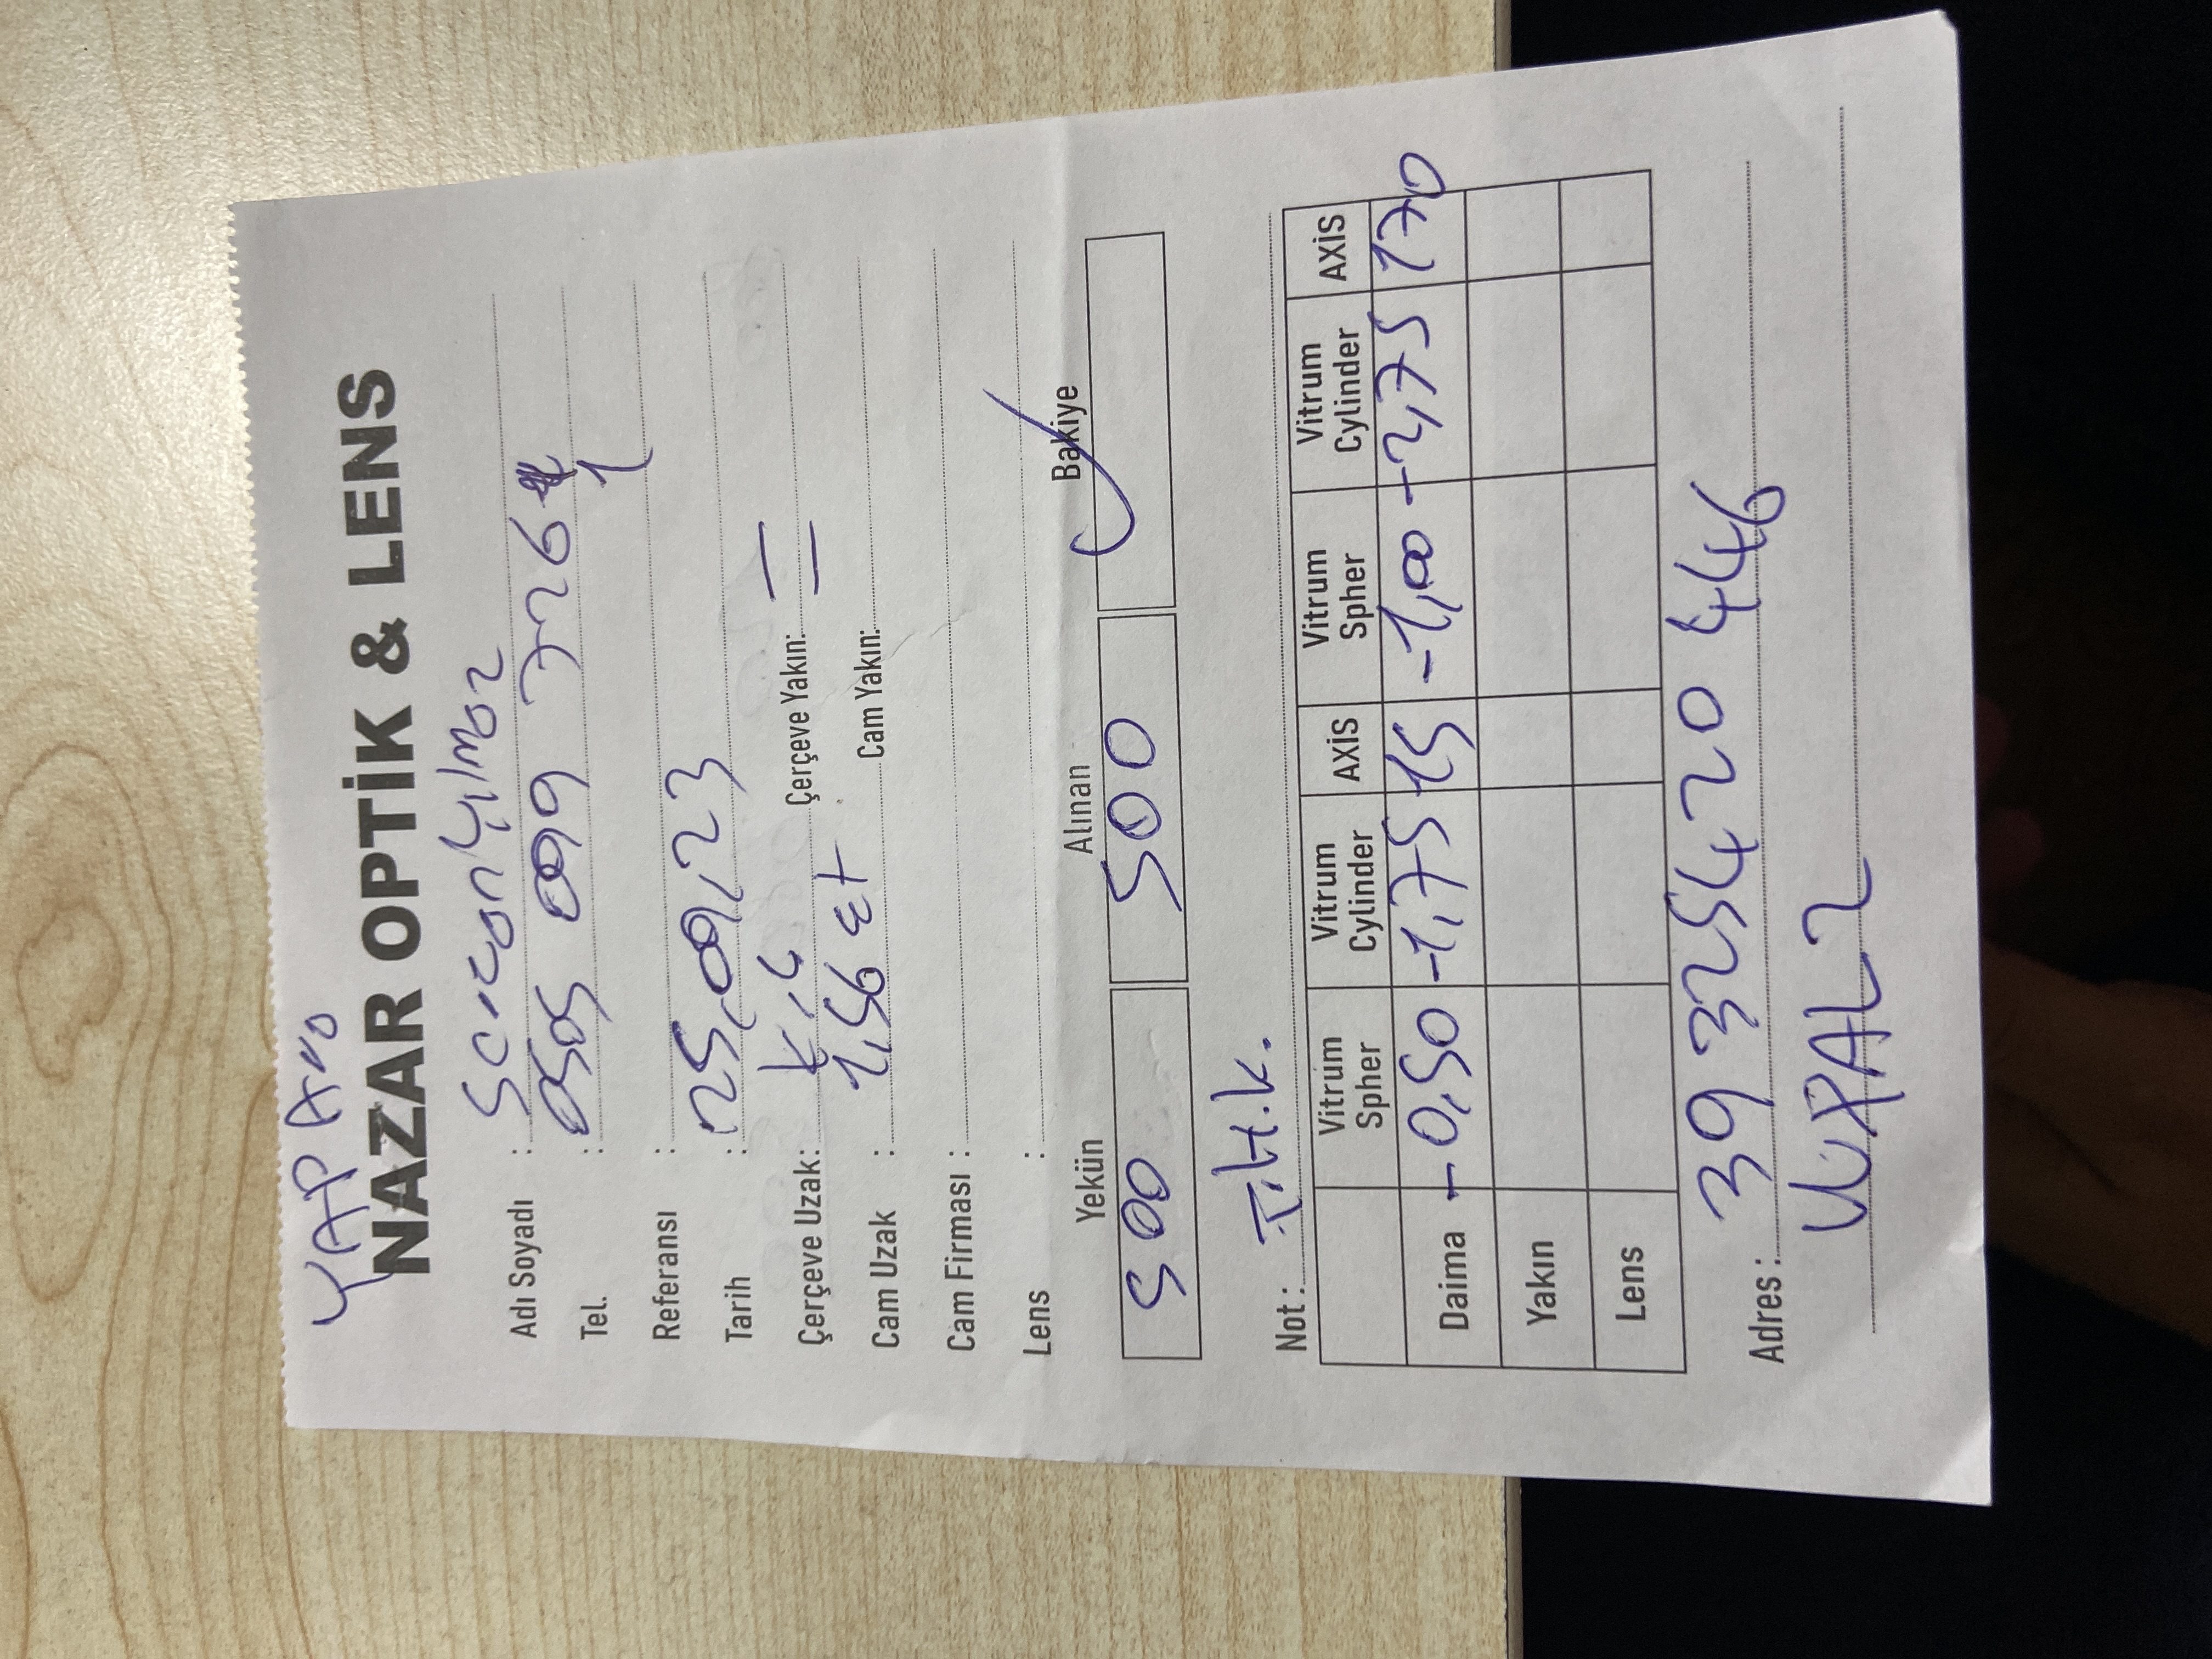 NAZAR OPTİK & LENS
Adı Soyadı : Sercan Yılmaz
Tel. : 0505 099 726
1
Referansı :
Tarih : 25,09,23
Çerçeve Uzak: Çerçeve Yakın:
Cam Uzak : 1,56 Cam Yakın:
Cam Firması :
Lens :
Yekün Alınan Bakiye
500 500
Not : T.H.K.
Vitrum Spher Vitrum Cylinder AXİS Vitrum Spher Vitrum Cylinder AXİS
Daima -0,50 -1,75 15 -1,00 -2,75 170
Yakın
Lens
Adres : 39325420446